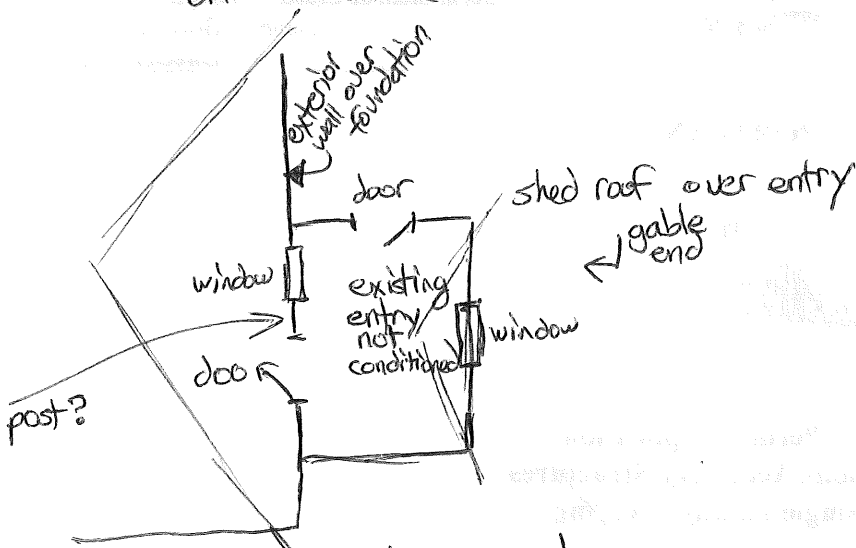 exterior
wall over
foundation
door
shed roof over entry
gable
end
window
existing
entry
not
conditioned
window
door
post?